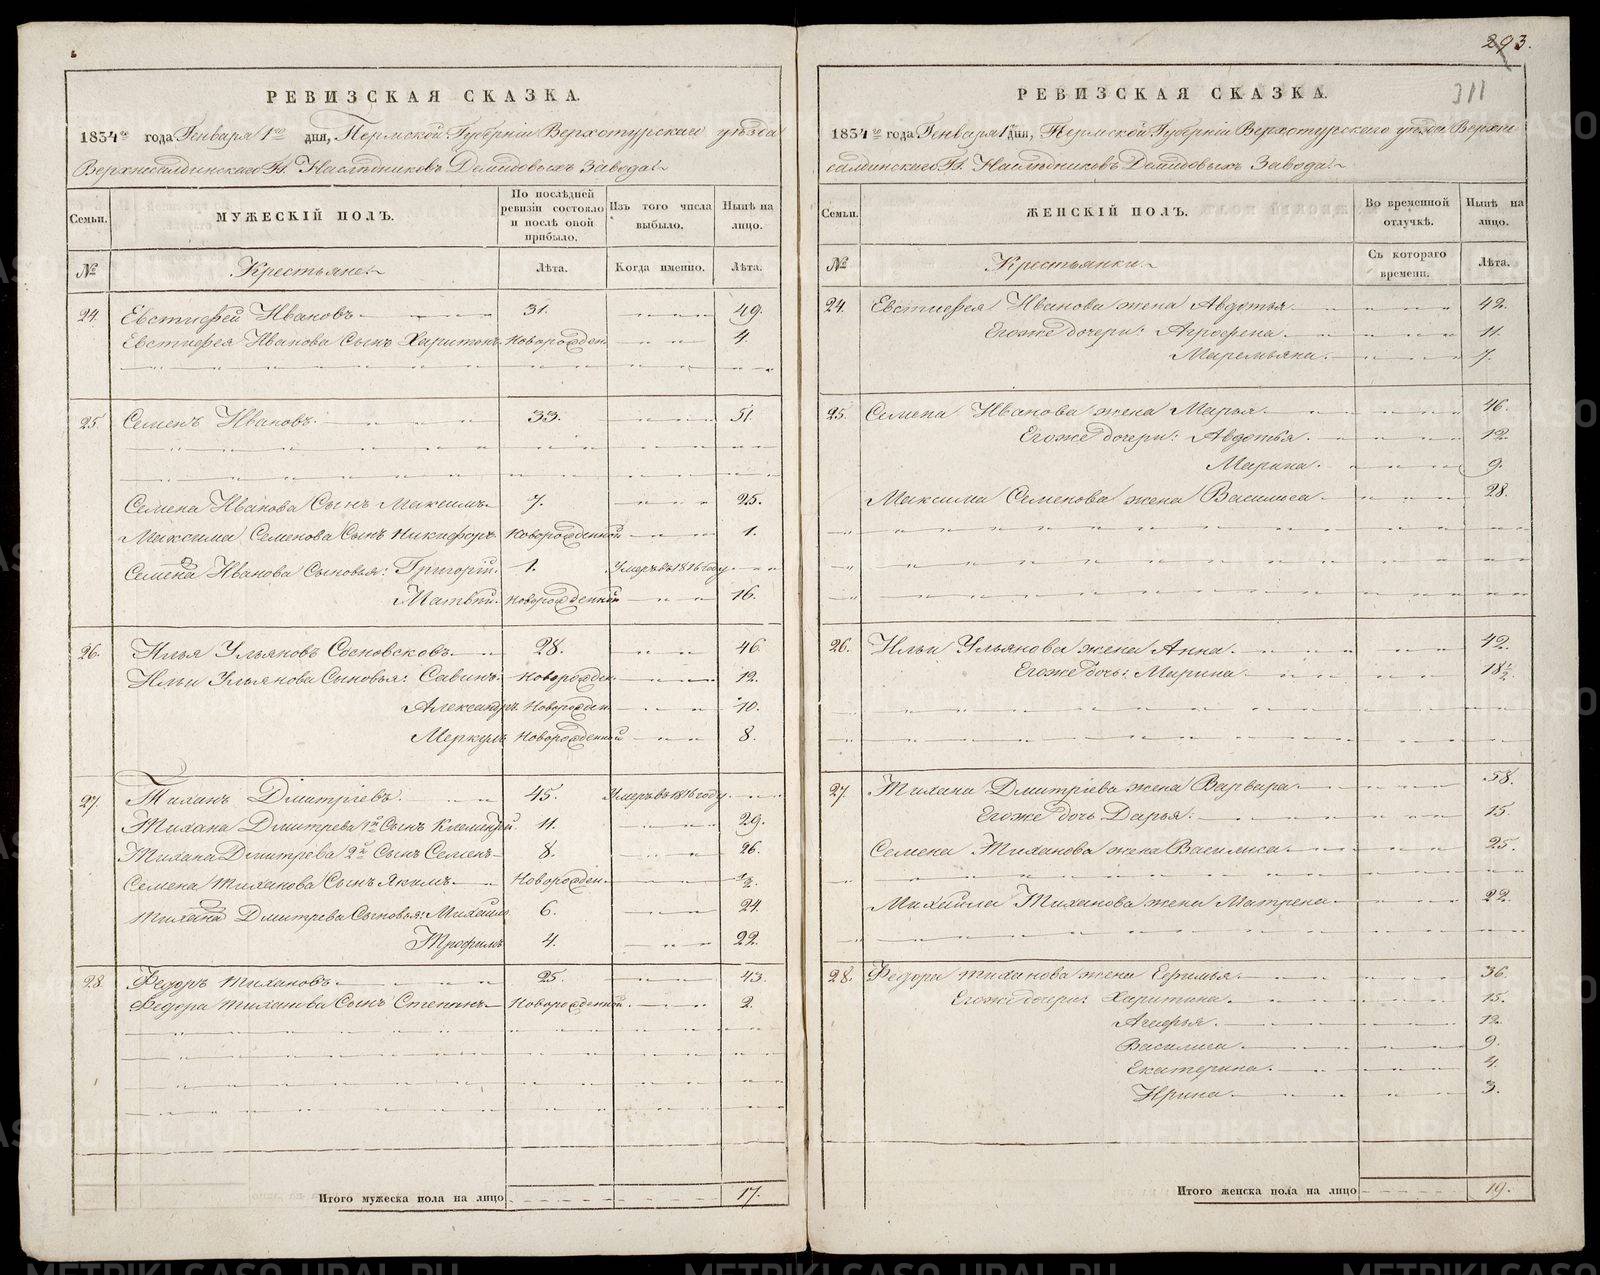 293.
311
РЕВИЗСКАЯ СКАЗКА.
1834го года Генваря 1го дня, Пермской Губерніи Верхотурскаго уѣзда
Верхнесалдинскаго Гг. Наслѣдниковъ Демидовыхъ Завода
Семьи.
МУЖЕСКІЙ ПОЛЪ.
По послѣдней ревизіи состояло и послѣ оной прибыло.
Изъ того числа выбыло.
Нынѣ на лицо.
№
Крестьяне
Лѣта.
Когда именно.
Лѣта.
24. Евстифей Ивановъ 31. 49.
Евстифея Иванова Сынъ Харитонъ Новорожден 4.
25. Семенъ Ивановъ 33. 51.
Семена Иванова Сынъ Максимъ 7. 25.
Максима Семенова Сынъ Никифоръ Новорожденной 1.
Семена Иванова Сыновья: Григорій 1. Умеръ въ 1816 году
Матвѣй Новорожденной 16.
26. Илья Ульяновъ Сосновсковъ 28. 46.
Ильи Ульянова Сыновья: Савинъ Новорожден 12.
Александръ Новорожден 10.
Меркулъ Новорожденной 8.
27. Тиханъ Дмитріевъ 45. Умеръ въ 1816 году
Тихана Дмитрева 1й Сынъ 11. 29.
Тихана Дмитрева 2й Сынъ Семенъ 8. 26.
Семена Тиханова Сынъ Якимъ Новорожден 1/2
Тихана Дмитрева Сыновья: Михайло 6. 24
Трофимъ 4. 22.
28. Федоръ Тихановъ 25. 43.
Федора Тиханова Сынъ Степанъ Новорожденной 2.
Итого мужеска пола на лицо 17.
РЕВИЗСКАЯ СКАЗКА.
1834го года Генваря 1го дня, Пермской Губерніи Верхотурскаго уѣзда Верхне
салдинскаго Гг. Наслѣдниковъ Демидовыхъ Завода
Семьи.
ЖЕНСКІЙ ПОЛЪ.
Во временной отлучкѣ.
Нынѣ на лицо.
№
Крестьянки
Съ котораго времени.
Лѣта.
24. Евстифея Иванова жена Авдотья 42.
Егоже дочери: Агрофена 11.
Маремьяна 7.
25. Семена Иванова жена Марья 46.
Егоже дочери: Авдотья 12.
Марина 9.
Максима Семенова жена Василиса 28.
26. Ильи Ульянова жена Анна 42.
Егоже дочь: Марина 18 1/2
27. Тихана Дмитріева жена Варвара 58.
Егоже дочь Дарья: 15.
Семена Тиханова жена Василиса 25.
Михайла Тиханова жена Матрена 22.
28. Федора Тиханова жена Ефимья 36.
Егоже дочери: Харитина 15.
12.
Василиса 9.
Екатерина 4.
Ирина 3.
Итого женска пола на лицо 19.
METRIKI.GASO-URAL.RU